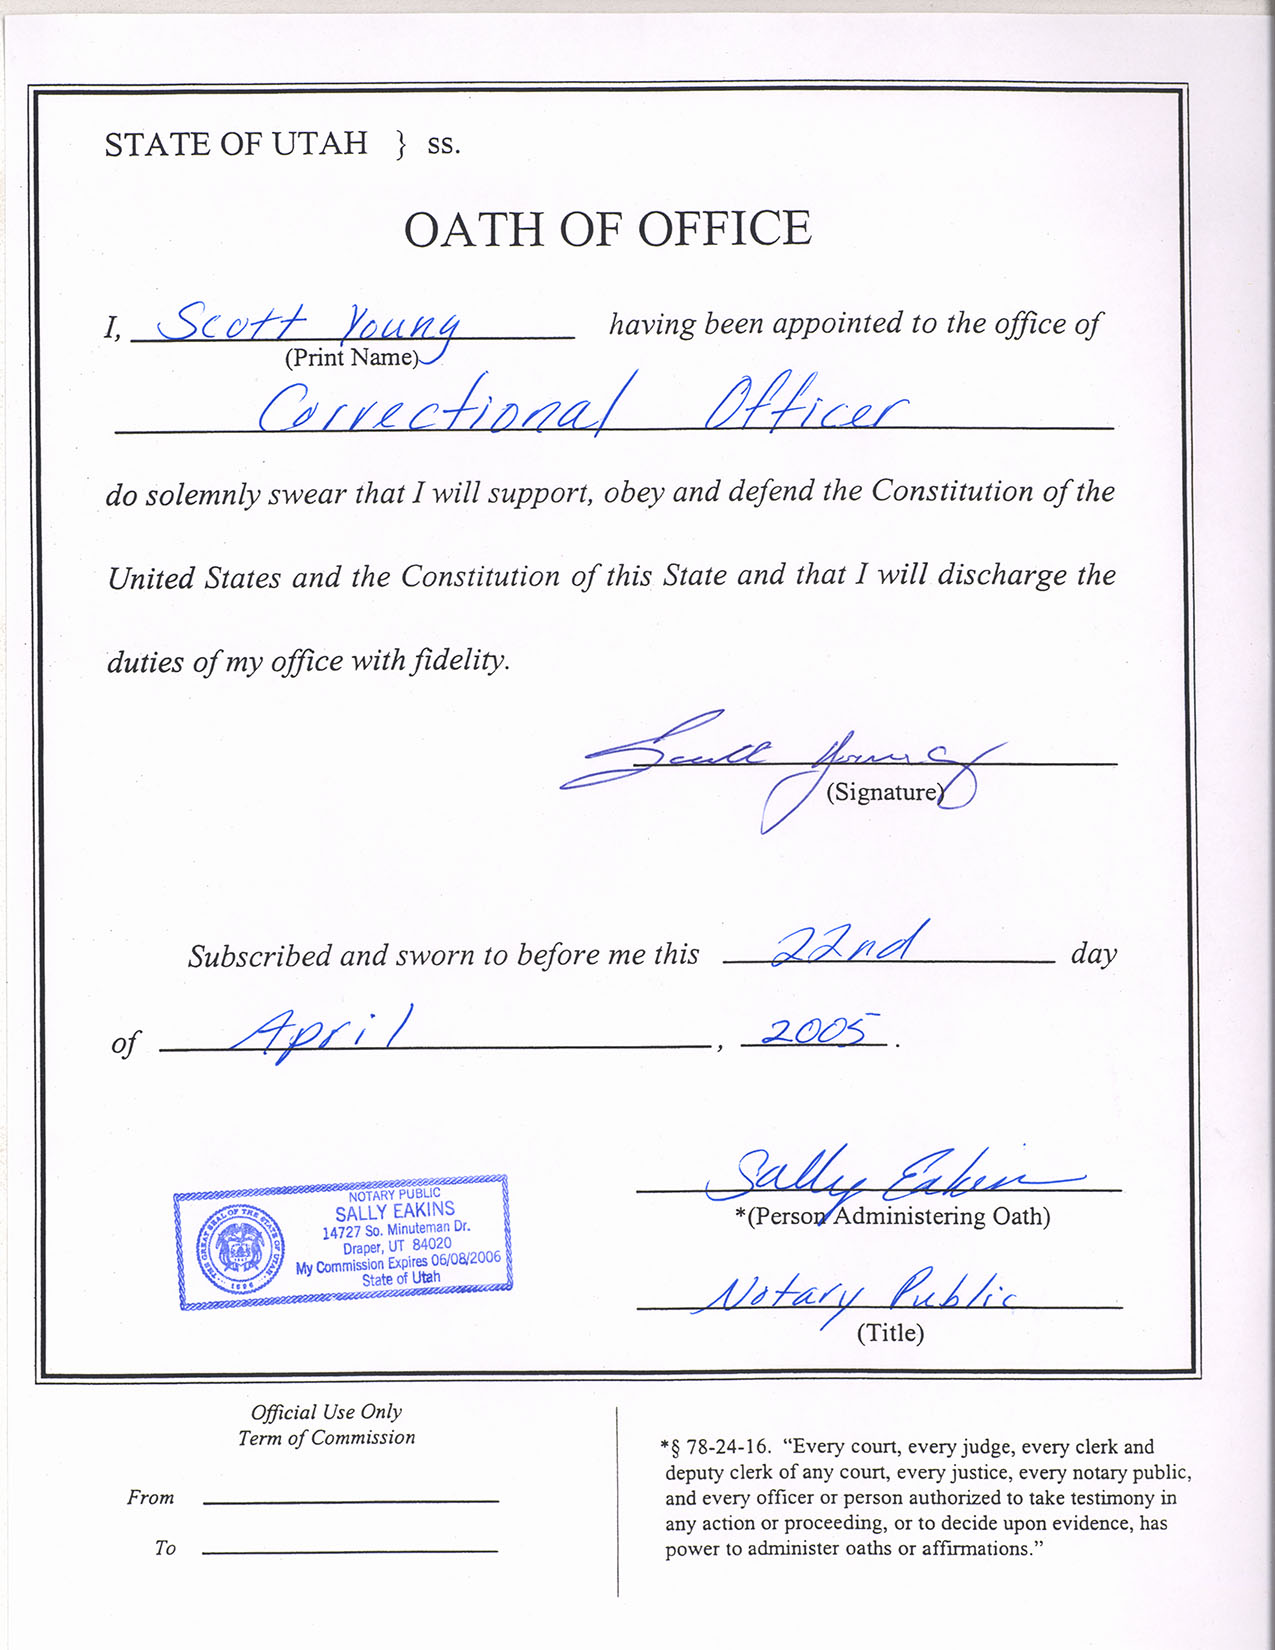 STATE OF UTAH } ss.
OATH OF OFFICE
I, Scott Young having been appointed to the office of
(Print Name)
Correctional Officer
do solemnly swear that I will support, obey and defend the Constitution of the
United States and the Constitution of this State and that I will discharge the
duties of my office with fidelity.
Scott Young
(Signature)
Subscribed and sworn to before me this 22nd day
of April, 2005.
Sally Eakins
*(Person Administering Oath)
Notary Public
(Title)
THE GREAT SEAL OF THE STATE OF UTAH
1896
NOTARY PUBLIC
SALLY EAKINS
14727 So. Minuteman Dr.
Draper, UT 84020
My Commission Expires 06/08/2006
State of Utah
Official Use Only
Term of Commission
From
To
*§ 78-24-16. “Every court, every judge, every clerk and
deputy clerk of any court, every justice, every notary public,
and every officer or person authorized to take testimony in
any action or proceeding, or to decide upon evidence, has
power to administer oaths or affirmations.”